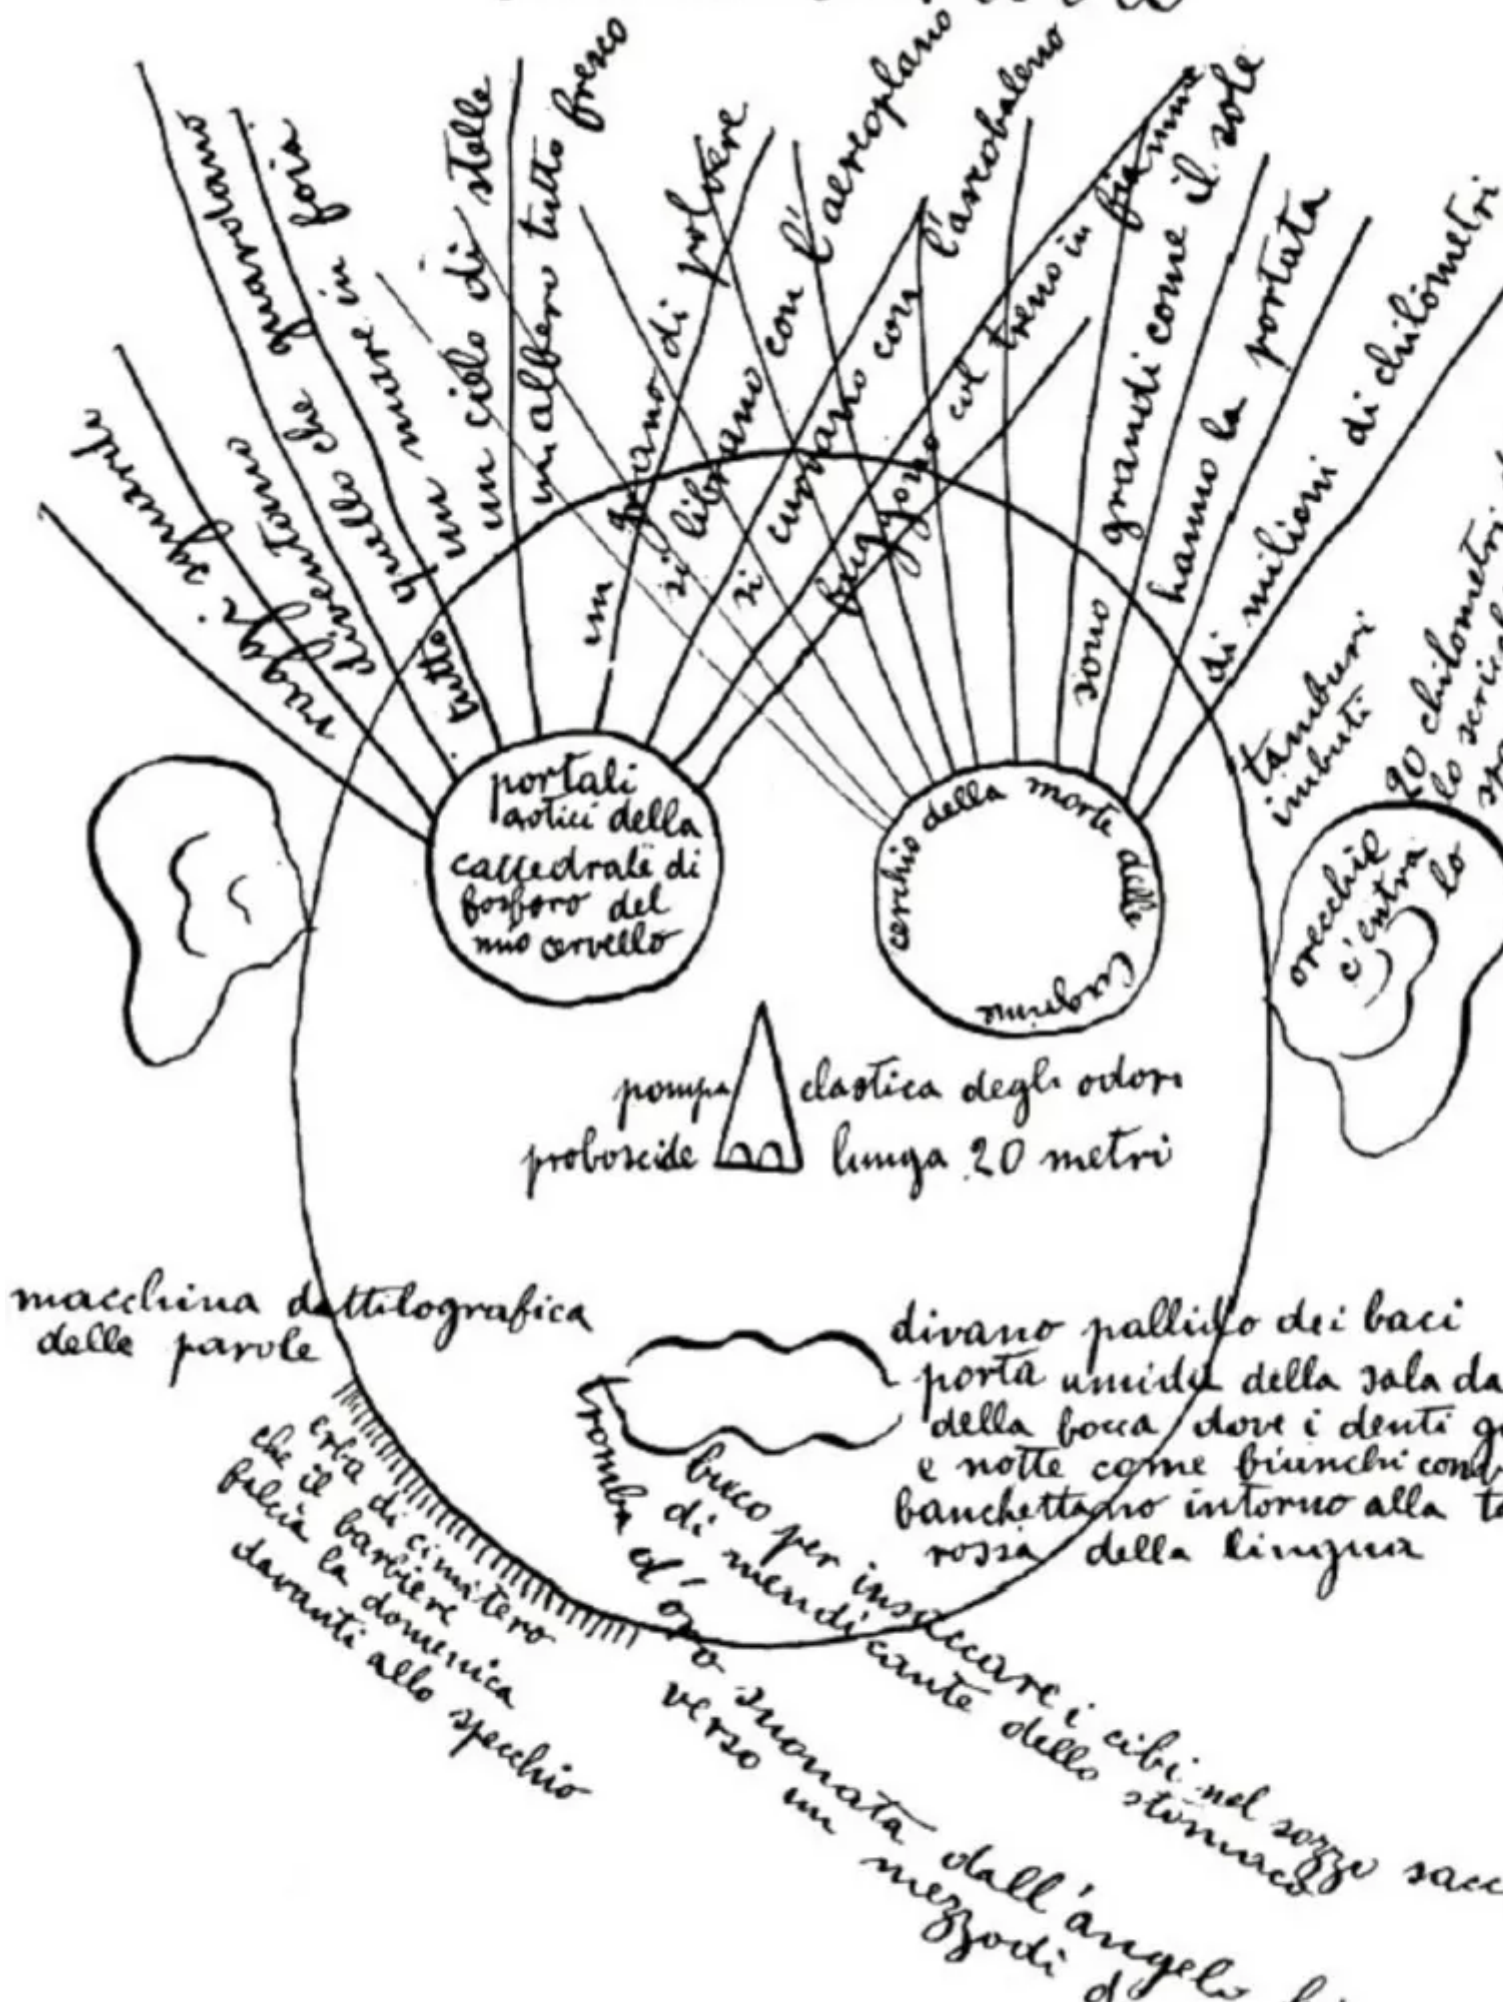 raggi sguardi
diventano
quello che guardano
tutto
un mare in
un cielo di stelle
un albero tutto fresco
un grano di polvere
si librano con l'aereoplano
si curvano con l'arcobaleno
fuggono col treno in fiamme
sono grandi come il sole
hanno la portata
di milioni di chilometri
portali
della
cattedrale di
fosforo del
mio cervello
cerchio della morte delle
tamburi
imbuti
20 chilometri
lo
orecchie
c'entra
lo
pompa elastica degli odori
proboscide lunga 20 metri
macchina dattilografica
delle parole
divano pallido dei baci
porta umida della sala da
della bocca dove i denti
e notte come bianchi
banchettano intorno alla
rossa della lingua
erba di cimitero
che il barbiere
falcia la domenica
davanti allo specchio
buco per insaccare i cibi nel sozzo
di mendicante dello stomaco
tromba d'oro suonata dall'angelo
verso un mezzodì